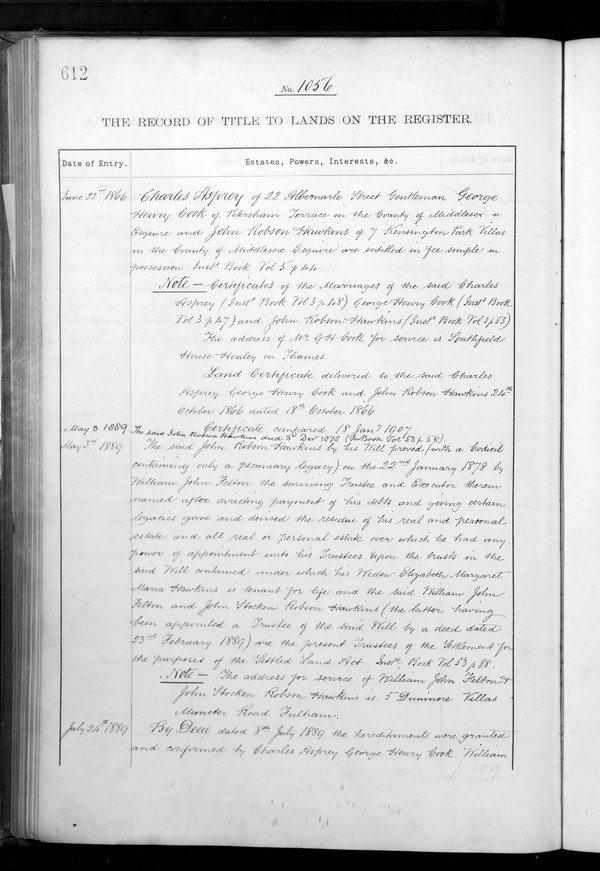 612
No. 1056
THE RECORD OF TITLE TO LANDS ON THE REGISTER.
Date of Entry.
Estates, Powers, Interests, &c.
June 22nd 1866 Charles Asprey of 22 Albemarle Street Gentleman George
Henry Cook of Petersham Terrace in the County of Middlesex
Esquire and John Robson Hawkins of 7 Kensington Park Villas
in the County of Middlesex Esquire are entitled in fee simple in
possession Inst Book Vol 5 p 44
Note – Certificates of the Marriages of the said Charles
Asprey (Inst Book Vol 3 p 48) George Henry Cook (Inst Book
Vol 3 p 47) and John Robson Hawkins (Inst Book Vol 3 p 53)
The address of Mr G H Cook for service is Southfield
House Henley on Thames
Land Certificate delivered to the said Charles
Asprey, George Henry Cook and John Robson Hawkins 24th
October 1866 dated 18th October 1866
Certificate compared 18 Jany 1907
May 3 1889 The said John Robson Hawkins died 3rd Decr 1878 (In Book Vol 53 p 58)
May 3rd 1889 The said John Robson Hawkins by his Will proved (with a Codicil
containing only a pecuniary legacy) on the 22nd January 1878 by
William John Felton the surviving Trustee and Executor therein
named after directing payment of his debts and giving certain
legacies gave and devised the residue of his real and personal
estate and all real or personal estate over which he had any
power of appointment unto his Trustees upon the trusts in the
said Will contained under which his Widow Elizabeth Margaret
Maria Hawkins is tenant for life and the said William John
Felton and John Stocken Robson Hawkins (the latter having
been appointed a Trustee of the said Will by a deed dated
23rd February 1889) are the present Trustees of the Settlement for
the purposes of the Settled Land Act. Inst. Book Vol 53 p 88.
Note – The address for service of William John Felton &
John Stocken Robson Hawkins is 5 Villas
Munster Road Fulham.
July 24th 1889 By Deed dated 8th July 1889 the hereditaments were granted
and confirmed by Charles Asprey George Henry Cook William